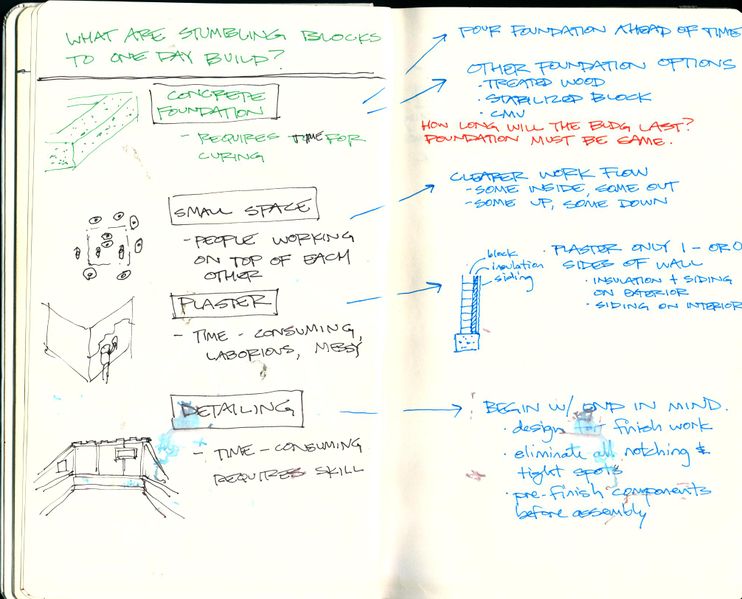 WHAT ARE STUMBLING BLOCKS
TO ONE DAY BUILD?
CONCRETE
FOUNDATION
- REQUIRES TIME FOR
CURING
SMALL SPACE
- PEOPLE WORKING
ON TOP OF EACH
OTHER
PLASTER
- TIME - CONSUMING,
LABORIOUS, MESSY
DETAILING
- TIME - CONSUMING
REQUIRES SKILL
POUR FOUNDATION AHEAD OF TIME
OTHER FOUNDATION OPTIONS
· TREATED WOOD
· STABILIZED BLOCK
· CMU
HOW LONG WILL THE BLDG LAST?
FOUNDATION MUST BE SAME.
CLEARER WORK FLOW
- SOME INSIDE, SOME OUT
- SOME UP, SOME DOWN
block
insulation
siding
· PLASTER ONLY 1 - OR 0
SIDES OF WALL
· INSULATION + SIDING
ON EXTERIOR
· SIDING ON INTERIOR
BEGIN W/ END IN MIND.
· design for finish work
· eliminate all notching &
tight spots
· pre-finish components
before assembly